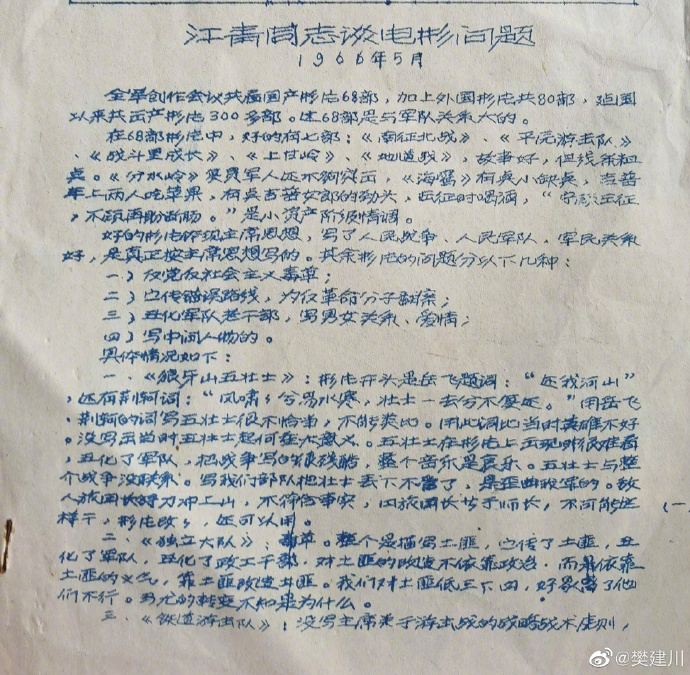 江青同志谈电影问题
1966年5月
全军创作会议共看国产影片68部，加上外国影片共80部，建国
以来共出产影片300多部。这68部是与军队关系大的。
在68部影片中，好的有七部：《南征北战》、《平原游击队》
、《战斗里成长》、《上甘岭》、《地道战》，故事好，但线条粗
些。《分水岭》写复员军人还不够突出，《海鹰》有些小缺点，吉普
车上两人吃苹果，有些吉普女郎的劲头，出征时唱酒，“常
，不须再”是小资产阶级情调。
好的影片体现主席思想，写了人民战争、人民军队，军民关系
好，是真正按主席思想写的。其余影片的问题分以下几种：
一）反党反社会主义毒草；
二）宣传错误路线，为反革命分子翻案；
三）丑化军队老干部，写男女关系、爱情；
四）写中间人物的。
具体情况如下：
一、《狼牙山五壮士》：影片开头是岳飞题词：“还我河山”
，还有荆轲词：“风啸兮易水寒，壮士一去兮不复还。”用岳飞、
荆轲的词写五壮士很不恰当，不能类比。用此词比当时英雄不好
。没写出当时五壮士起何重大意义。五壮士在影片上出现时很难看
，丑化了军队，把战争写的很残酷，整个音乐是哀乐。五壮士与整
个战争没联系。写我们部队把壮士丢下不管了，是歪曲我军的。敌
人旅团长持刀冲上山，不符合事实，因旅团长等于师长，不可能这
样干，影片改，还可以用。
二、《独立大队》：毒草。整个是描写土匪，宣传了土匪，丑
化了军队，丑化了政工干部，对土匪的改造不依靠政治，而是依靠
土匪的义气，靠土匪改造土匪。我们对土匪低三下四，好象离了他
们不行。马尤的转变不知是为什么。
三、《铁道游击队》：没写主席关于游击战的战略战术原则，
（一
@樊建川